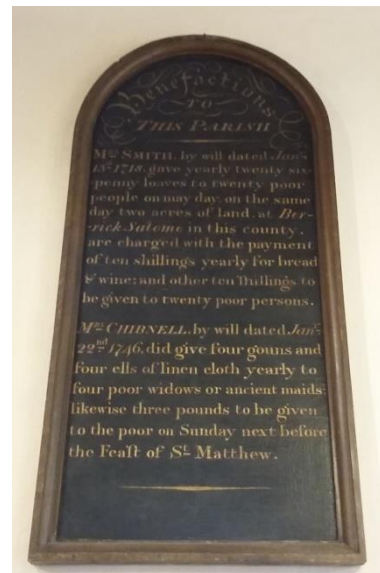 Benefactions
TO
THIS PARISH
Mrs SMITH, by will dated Jany
15th 1718, gave yearly twenty six-
penny loaves to twenty poor
people on may day, on the same
day two acres of land, at Ber-
-rick Salome in this county,
are charged with the payment
of ten shillings yearly for bread
& wine: and other ten ſhillings to
be given to twenty poor persons.
Mrs CHIBNELL, by will dated Jany
22nd 1746, did give four gouns and
four ells of linen cloth yearly to
four poor widows or ancient maids:
likewise three pounds to be given
to the poor on Sunday next before
the Feaſt of St Matthew.